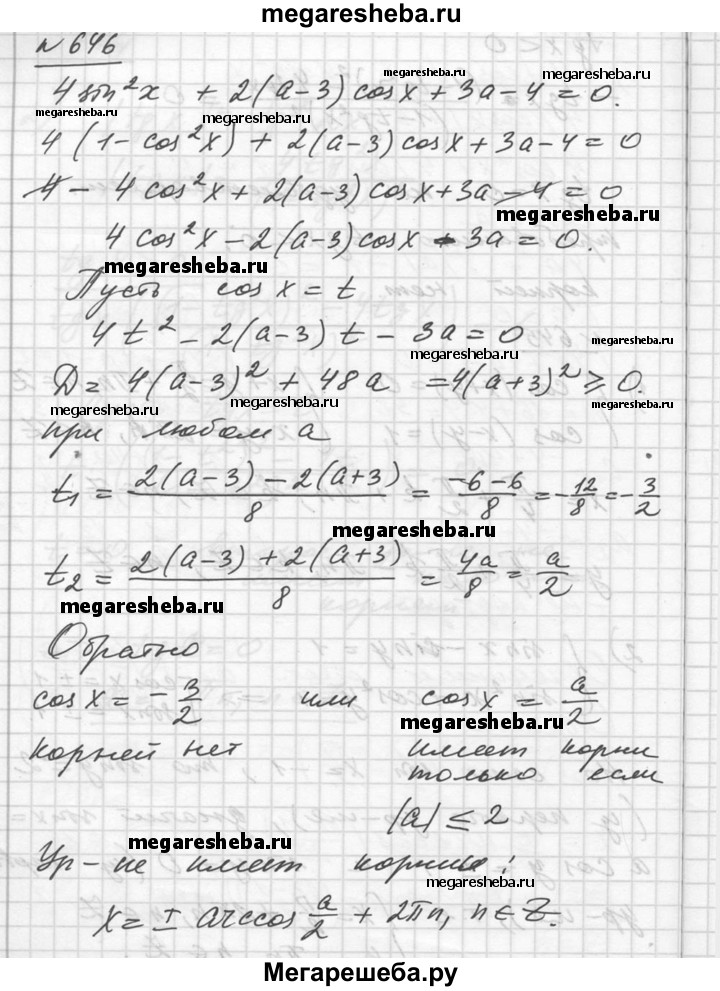 megaresheba.ru
N 646
4 sin²x + 2(a-3) cos x + 3a - 4 = 0.
megaresheba.ru
megaresheba.ru megaresheba.ru
4 (1 - cos²x) + 2(a-3) cos x + 3a - 4 = 0
4 - 4 cos²x + 2(a-3) cos x + 3a - 4 = 0
megaresheba.ru
4 cos²x - 2(a-3) cos x - 3a = 0.
megaresheba.ru
Пусть cos x = t
4t² - 2(a-3) t - 3a = 0
megaresheba.ru
D = 4(a-3)² + 48a = 4(a+3)² ≥ 0.
megaresheba.ru megaresheba.ru
при любом a
t₁ = (2(a-3) - 2(a+3))/8 = (-6-6)/8 = -12/8 = -3/2
megaresheba.ru
t₂ = (2(a-3) + 2(a+3))/8 = 4a/8 = a/2
megaresheba.ru
Обратно
cos x = -3/2 или cos x = a/2
megaresheba.ru
корней нет имеет корни
только если
|a| ≤ 2
megaresheba.ru
Ур-ие имеет корни:
megaresheba.ru
x = ± arccos a/2 + 2πn, n ∈ Z.
Мегарешеба.ру